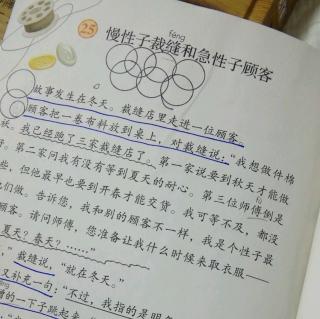 25
féng
慢性子裁缝和急性子顾客
故事发生在冬天。裁缝店里走进一位顾客。
顾客把一卷布料放到桌上，对裁缝说：“我想做件棉
袄。我已经跑了三家裁缝店了。第一家说要到秋天才能做
好。第二家问我有没有等到夏天的耐心。第三位师傅倒是
些，但他最早也要到开春才能交货。我可等不及，都没
他们做。告诉您，我和别的顾客不一样，我是个性子最
顾客。请问师傅，您准备让我什么时候来取衣服——
夏天？春天？……”
裁缝说，“就在冬天。”
又补充一句：“不过，我指的是明
噌的一下子跳起来